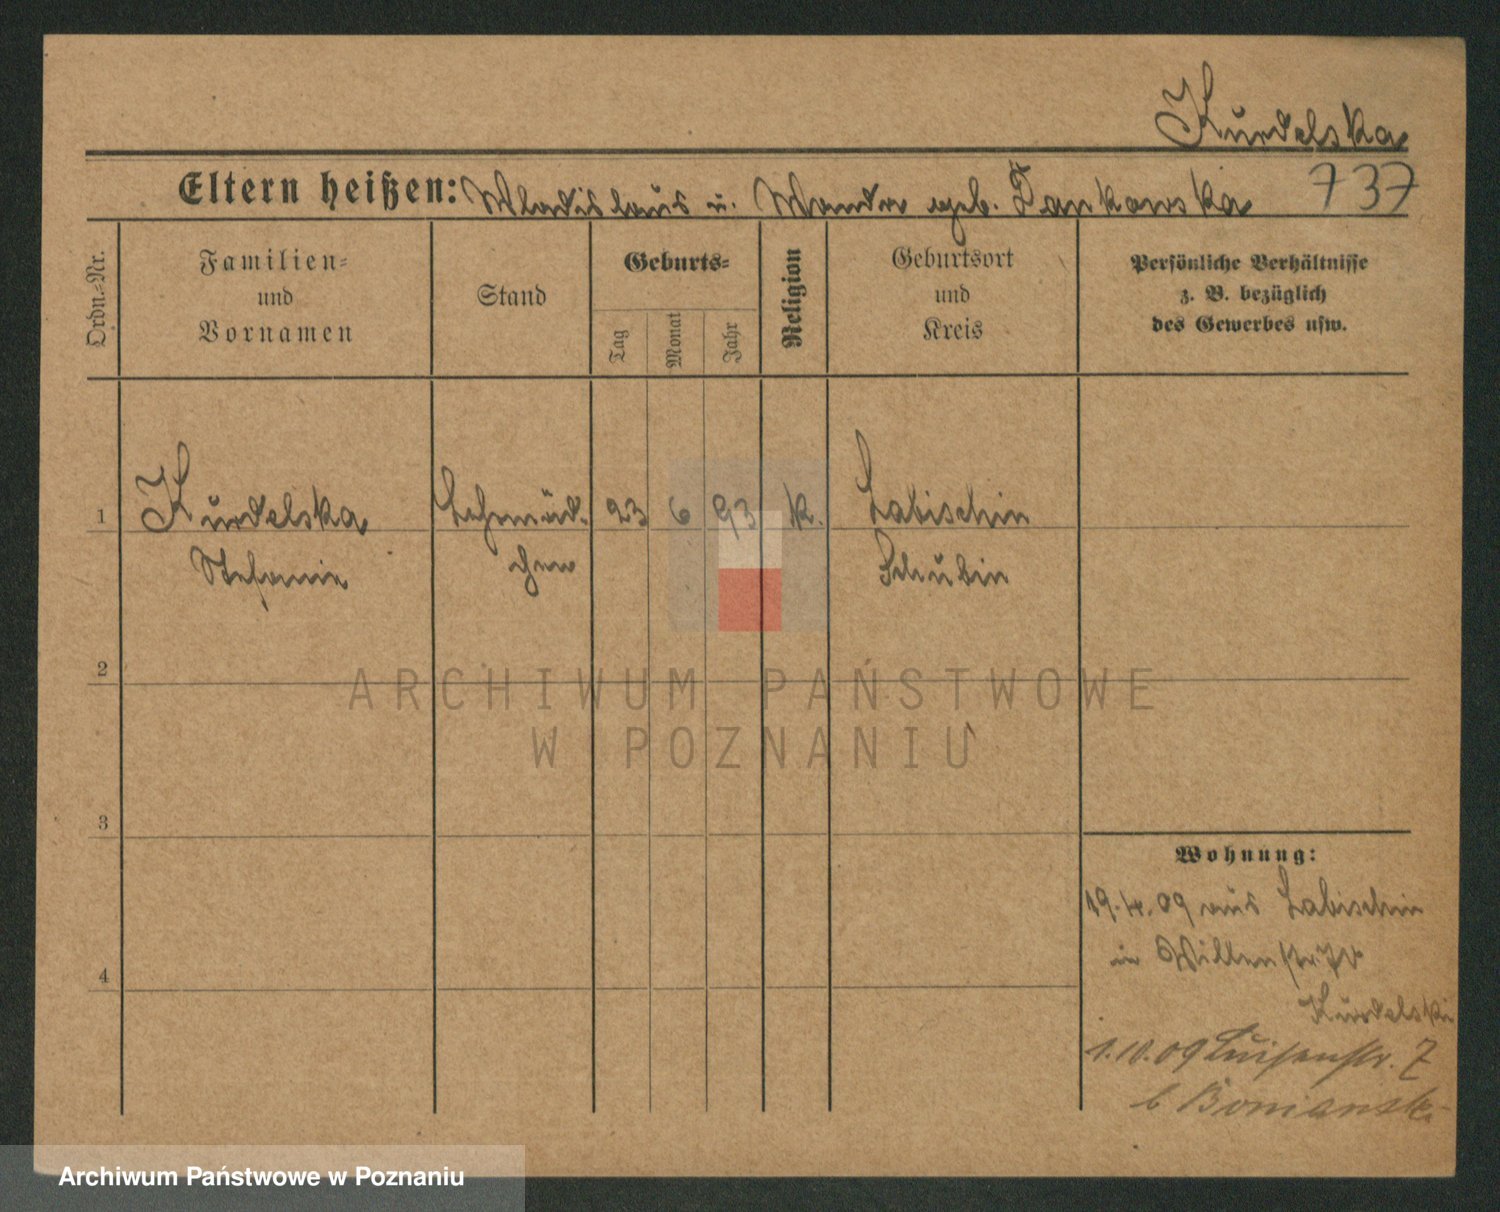 Kurdelska
Eltern heißen: Wladislaus u. Wanda geb. Jankowska 737
Ordn.-Nr.
Familien-
und
Vornamen
Stand
Geburts-
Tag
Monat
Jahr
Religion
Geburtsort
und
Kreis
Persönliche Verhältnisse
z. B. bezüglich
des Gewerbes usw.
1 Kurdelska Lehrmäd- 23 6 93 k. Labischin
Stefanie chen Schubin
2
ARCHIWUM PAŃSTWOWE
W POZNANIU
3
Wohnung:
19.4.09 aus Labischin
in
4
Kurdelski
1.10.09 Luisenstr. 7
b
Archiwum Państwowe w Poznaniu